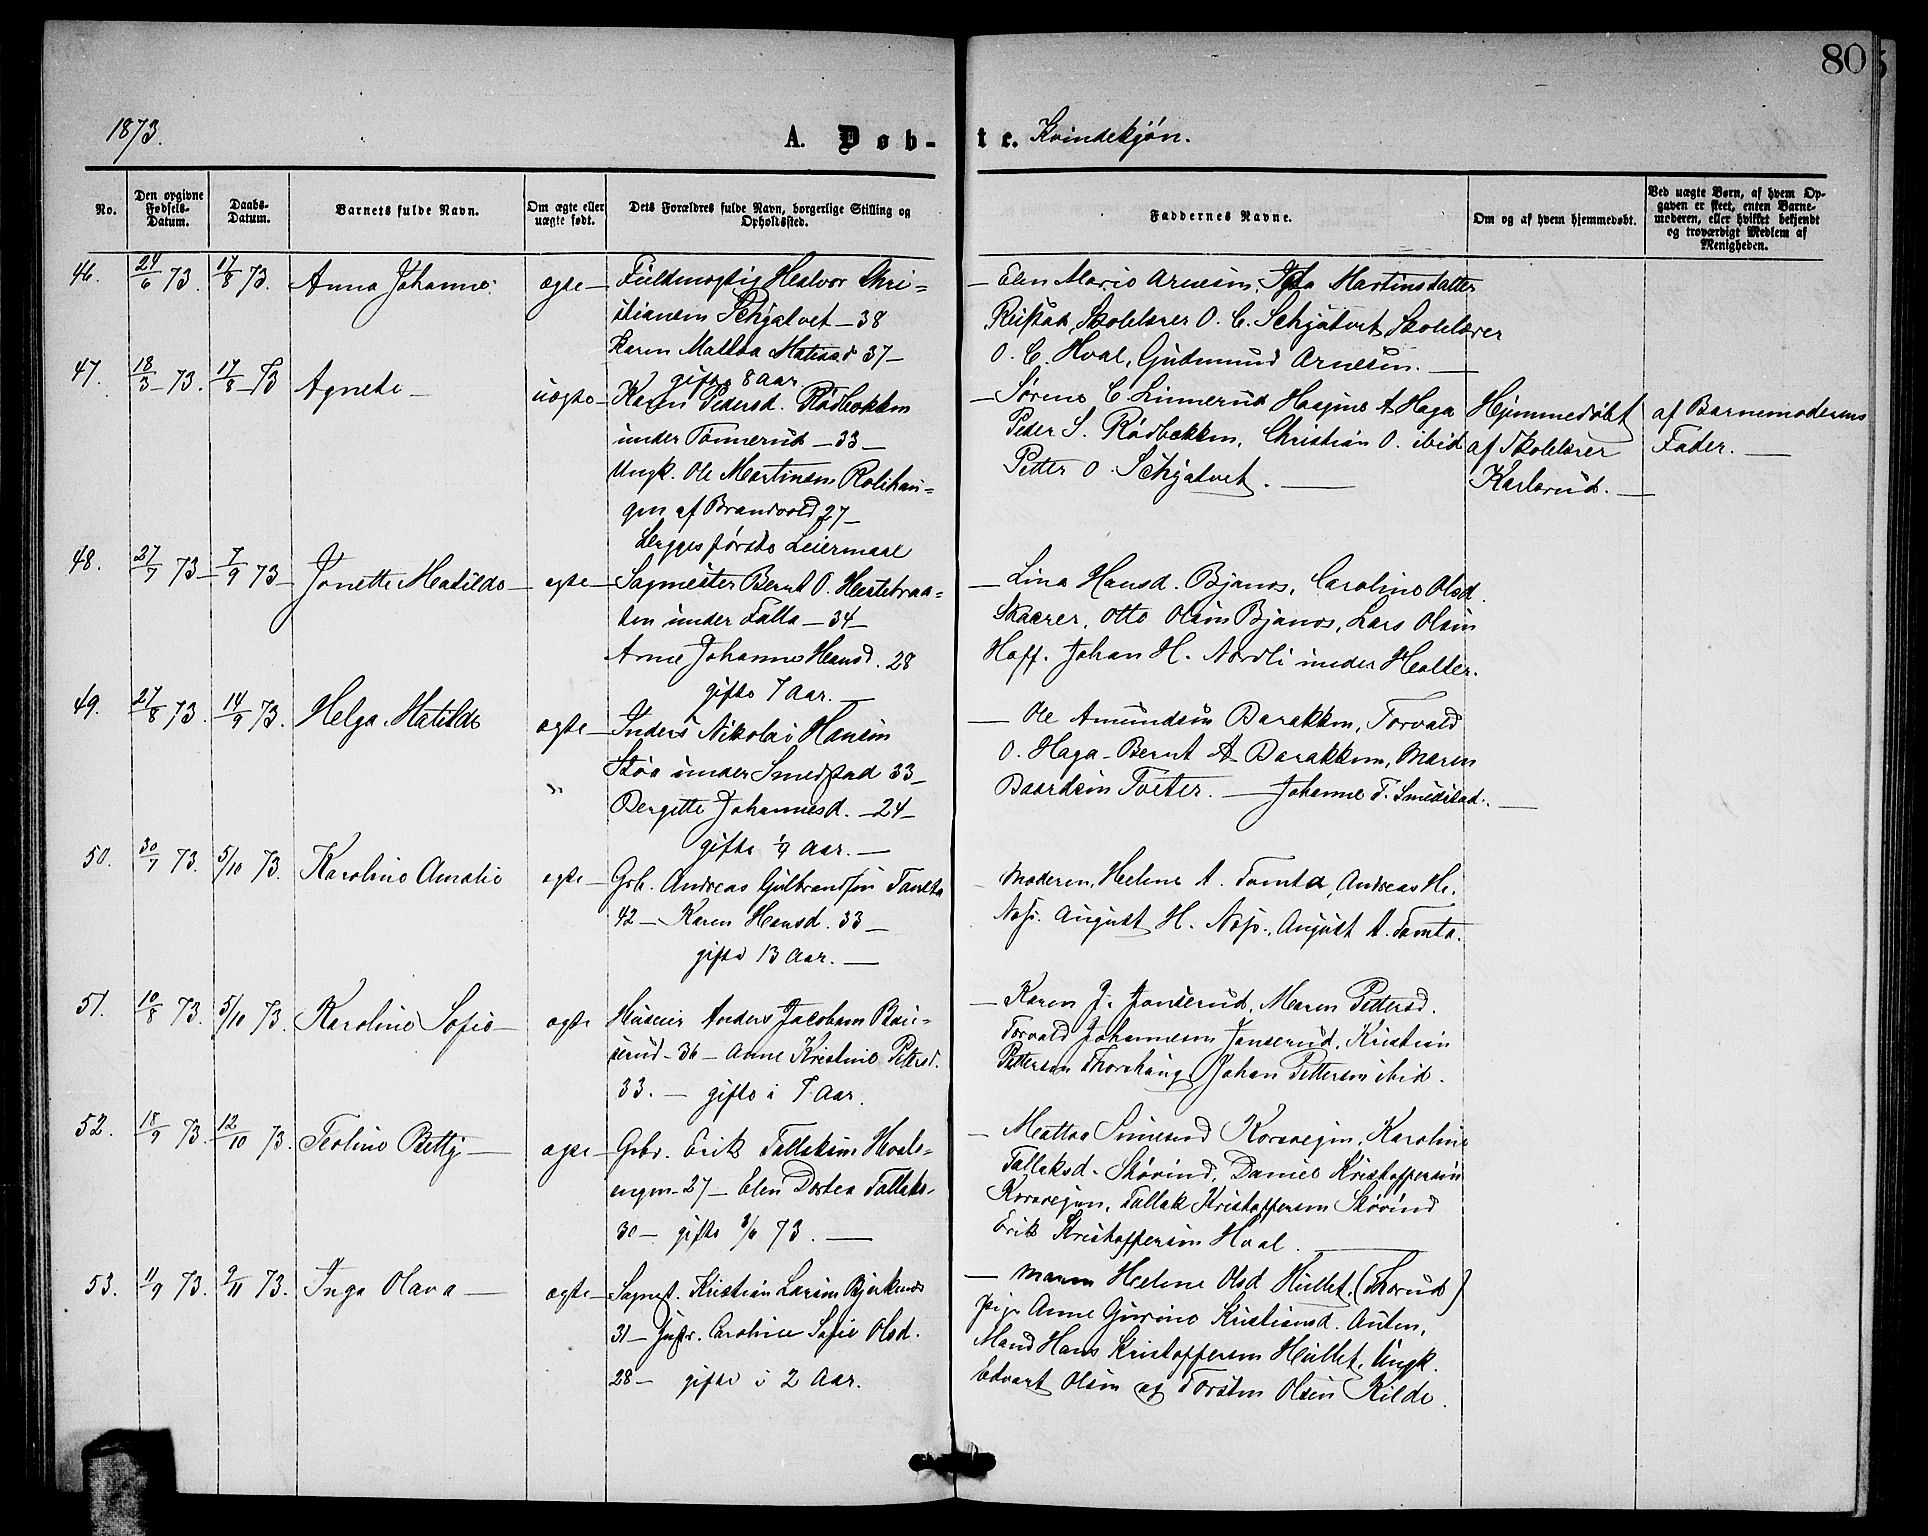 80
1873.
A. Døb-te. Kvindekjøn.
No.
Den opgivne Fødsels-Datum.
Daabs-Datum.
Barnets fulde Navn.
Om ægte eller uægte født.
Dets Forældres fulde Navn, borgerlige Stilling og Opholdssted.
Faddernes Navne.
Om og af hvem hjemmedøbt.
Ved uægte Børn, af hvem Opgaven er skeet, enten Barnemoderen, eller hvilket bekjendt og troværdigt Medlem af Menigheden.
46. 24/6 73. 17/8 73. Anna Johanne. ægte —
Fuldmægtig Halvor Chri=
stiansen Schjatvet — 38
Karen Mathea 37 —
gifte 8 Aar
— Elen Marie Arnesen, Martinsdatter
Rustad, Skolelærer O. C. Schjatvet, Skolelærer
O. C. Hval, Gudmund Arnesen. —
47. 18/3 — 73. 17/8 — 73 Agnete — uægte —
Karen Pedersd. Rødbækken
under Tønnerud — 33 —
Ungk. Ole Martinsen Rolihau=
gen af Brandvold 27 —
begges første Leiermaal
— Sørine C Linnerud Haagine A Haga
Peder S. Rødbækken, Christian O. ibid
Petter O. Schjatvet. —
Hjemmedøbt
af Skolelærer
Karlsrud. —
af Barnemoderens
Fader. —
48. 27/7 73 — 7/9 73 — Jonette Matilde — ægte —
Sagmester Bernt O. Hestebraa=
ten under Falla — 34 —
Anne Johanne Hansd. 28
gifte 7 Aar. —
— Lina Hansd. Bjanes, Caroline Olsd.
Skaarer, Otto Olsen Bjanes, Lars Olsen
Hoff. Johan H. Nordli under Holter.
49. 27/8 73. 14/9 73. Helga Matilde ægte — "
Inders Nikolai Hansen
Støa under Smedstad 33 —
Bergitte Johannesd. — 24 —
gifte 1/4 Aar. —
— Ole Amundsen Barakken, Torvald
O. Haga — Bernt A Barakken, Maren
Baardsen Toeter. — Johanne T. Smedstad. —
50. 30/7 73. 5/10 73. Karoline Amalie ægte —
Grb. Andreas Gulbrandsen Tomta
42 — Karen Hansd. 33 —
gifte 13 Aar. —
— Moderen, Helene A. Tomta, Andreas H.
Næss. August H. Næss., August A. Tomta.
51. 10/8 73. 5/10 73. Karoline Sofie — ægte
Huseier Anders Jacobsen Bau=
serud — 36 — Anne Kristine Pettersd.
33. — gifte i 7 Aar.
— Karen J. Jonserud, Maren Pettersd.
Torvald Johannesen Jonserud. Kristian
Pettersen Thorshaug Johan Pettersen ibid.
52. 18/9 73. 12/10 73. Teoline Betty — ægte —
Grbr. Erik Tallaksen Hvals=
engen — 27 — Elen Dortea Tallaks.
30 — gifte 3/6 73. —
— Mattea Simensd Korsvegen, Karoline
Tallaksd. Skøvind, Daniel Kristoffersen
Korsvegen, Tallak Kristoffersen Skøvind
Erik Kristoffersen Hval. —
53. 11/9 73. 9/11 73. Inga Olava — ægte —
Sagmst. Kristian Larsen Bjerkenæs
31 — Hustr. Caroline Sofie Olsd.
28 — gifte i 2 Aar.
— Maren Helene Olsd Hullet. (Thorud)
Pige Anne Gurine Kristiansd. Auten,
Mand Hans Kristoffersen Hullet, Ungk.
Edvart Olsen og Torsten Olsen Kilde.